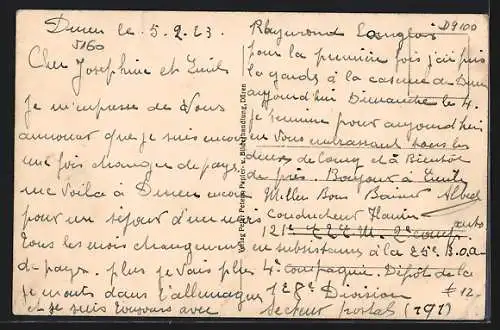 Duren le. 5.9.23.
5160
Cher Josephine et Emile
Je m'empresse de Vous
annoncer que je suis encore
une fois changer de pays
me Voila à Duren encore
pour un séjour d'un mois
tous les mois changement
de pays. plus je vais plus
je monte dans l'allemagne
et je suis toujours avec
Verlag Peter Papier- u. Bilderhandlung, Düren
D9100
Raymond Langlois
pour la première fois j'ai pris
la garde à la caserne de Duren
aujourd'hui Dimanche le 4.
je termine pour aujourd'hui
en Vous embrassant tous les
deux de loin et à Bientôt
de près. Bonjour à Emile
Milles Bons Baisers Alfred
Conducteur auto
121e 2e comp.
en subsistance à la 25e B.O.A
4e compagnie. Dépôt de la
128e Division #12.
Secteur postal (191)